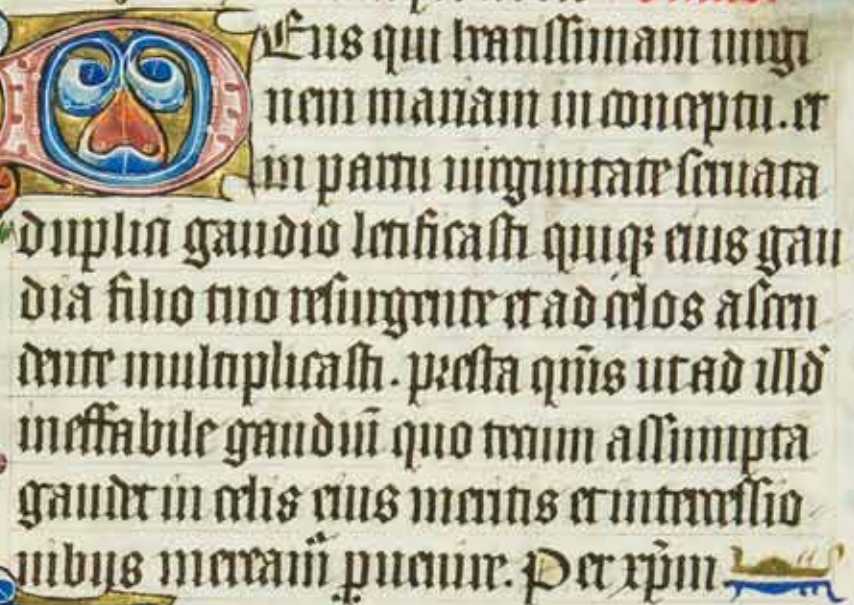 DEus qui beatissimam uirgi
nem mariam in conceptu. et
in partu uirginitate seruata
duplici gaudio letificasti quiqꝫ eius gau
dia filio tuo resurgente et ad celos ascen
dente multiplicasti. presta qm̄s ut ad illd̄
ineffabile gaudiū quo tecum assumpta
gaudet in celis eius meritis et intercessio
nibus mereamur̄ ꝑuenire. Per xp̄m